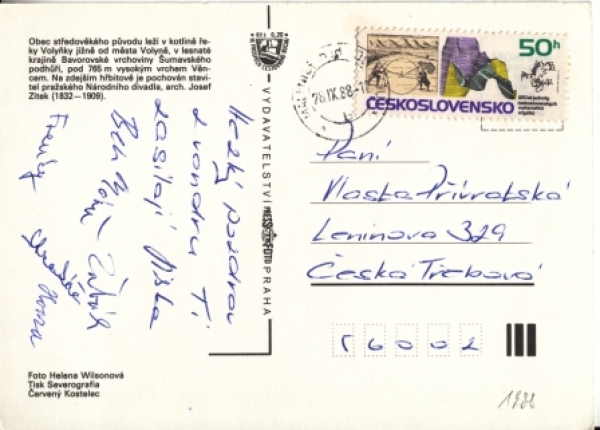 Obec středověkého původu leží v kotlině ře-
ky Volyňky jižně od města Volyně, v lesnaté
krajině Bavorovské vrchoviny Šumavského
podhůří, pod 765 m vysokým vrchem Věn-
cem. Na zdejším hřbitově je pochován stavi-
tel pražského Národního divadla, arch. Josef
Zítek (1832—1909).
Hezký pozdrav
z vandru Ti
zasílají
Foto Helena Wilsonová
Tisk Severografia
Červený Kostelec
VYDAVATELSTVÍ PRESSFOTO PRAHA
26.IX.88
50h
ČESKOSLOVENSKO
Paní
Vlasta Přívratská
Leninova 329
Česká Třebová
56002
1988